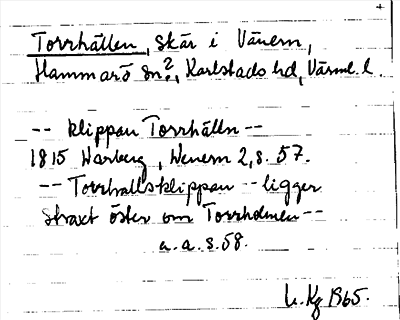 +
Torrhällen, skär i Vänern,
Hammarö sn?, Karlstads hd, Värml. l.
-- klippan Torrhälln --
1815 Warberg, Wenern 2, s. 57.
-- Torrhallsklippan -- ligger
straxt öster om Torrholmen --
a. a. s. 58.
1965.